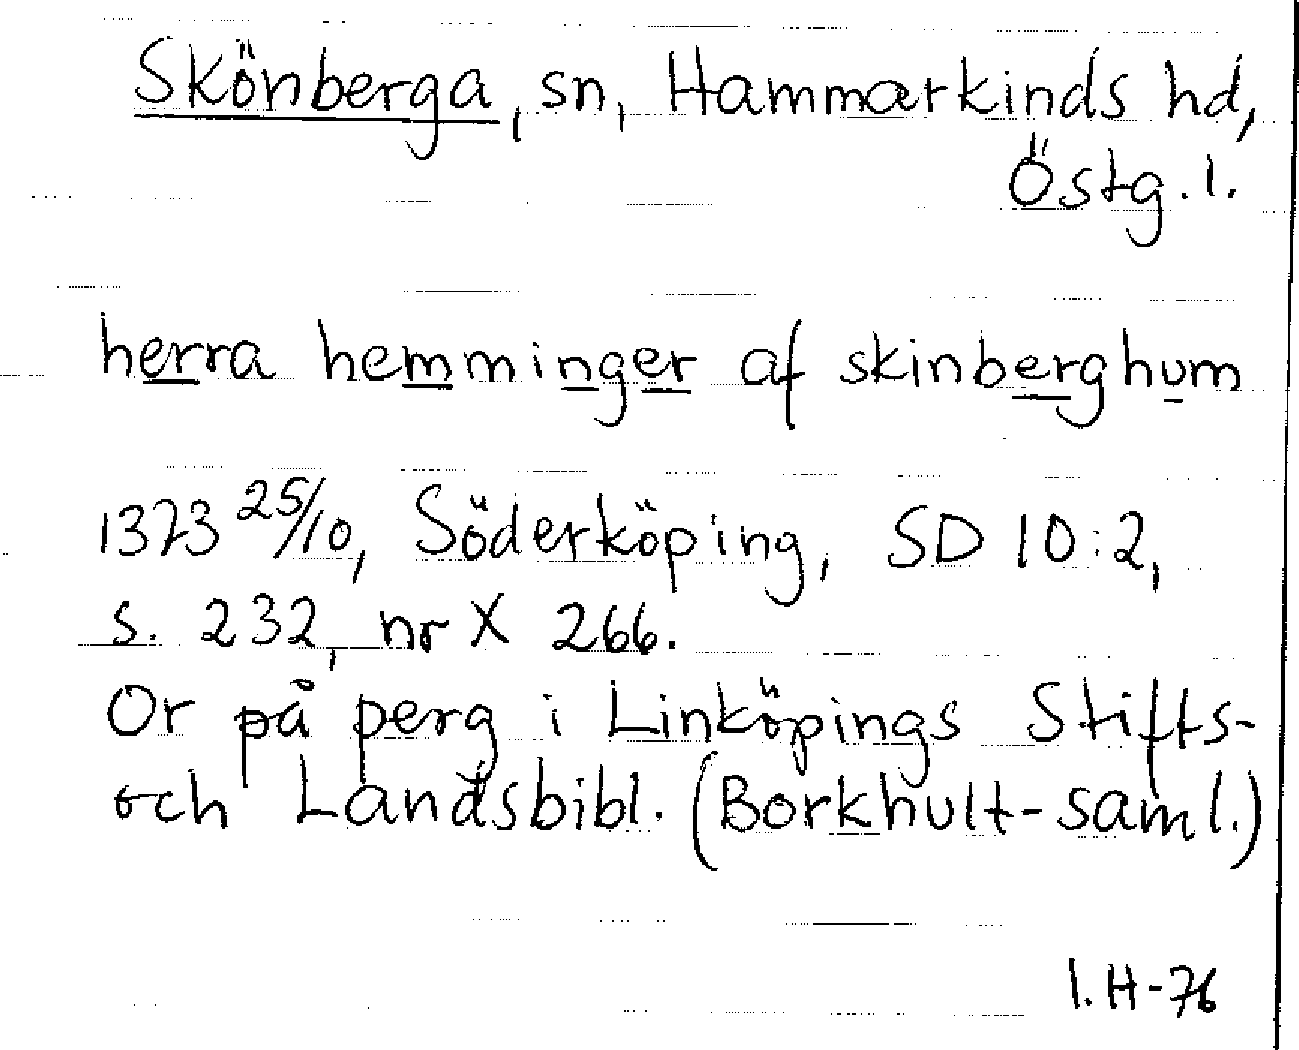 Skönberga, sn, Hammarkinds hd,
Östg. l.
herra hemminger af skinberghum
1373 25/10, Söderköping, SD 10:2,
s. 232, nr X 266.
Or på perg i Linköpings Stifts-
och Landsbibl. (Borkhult-saml.)
I. H-76